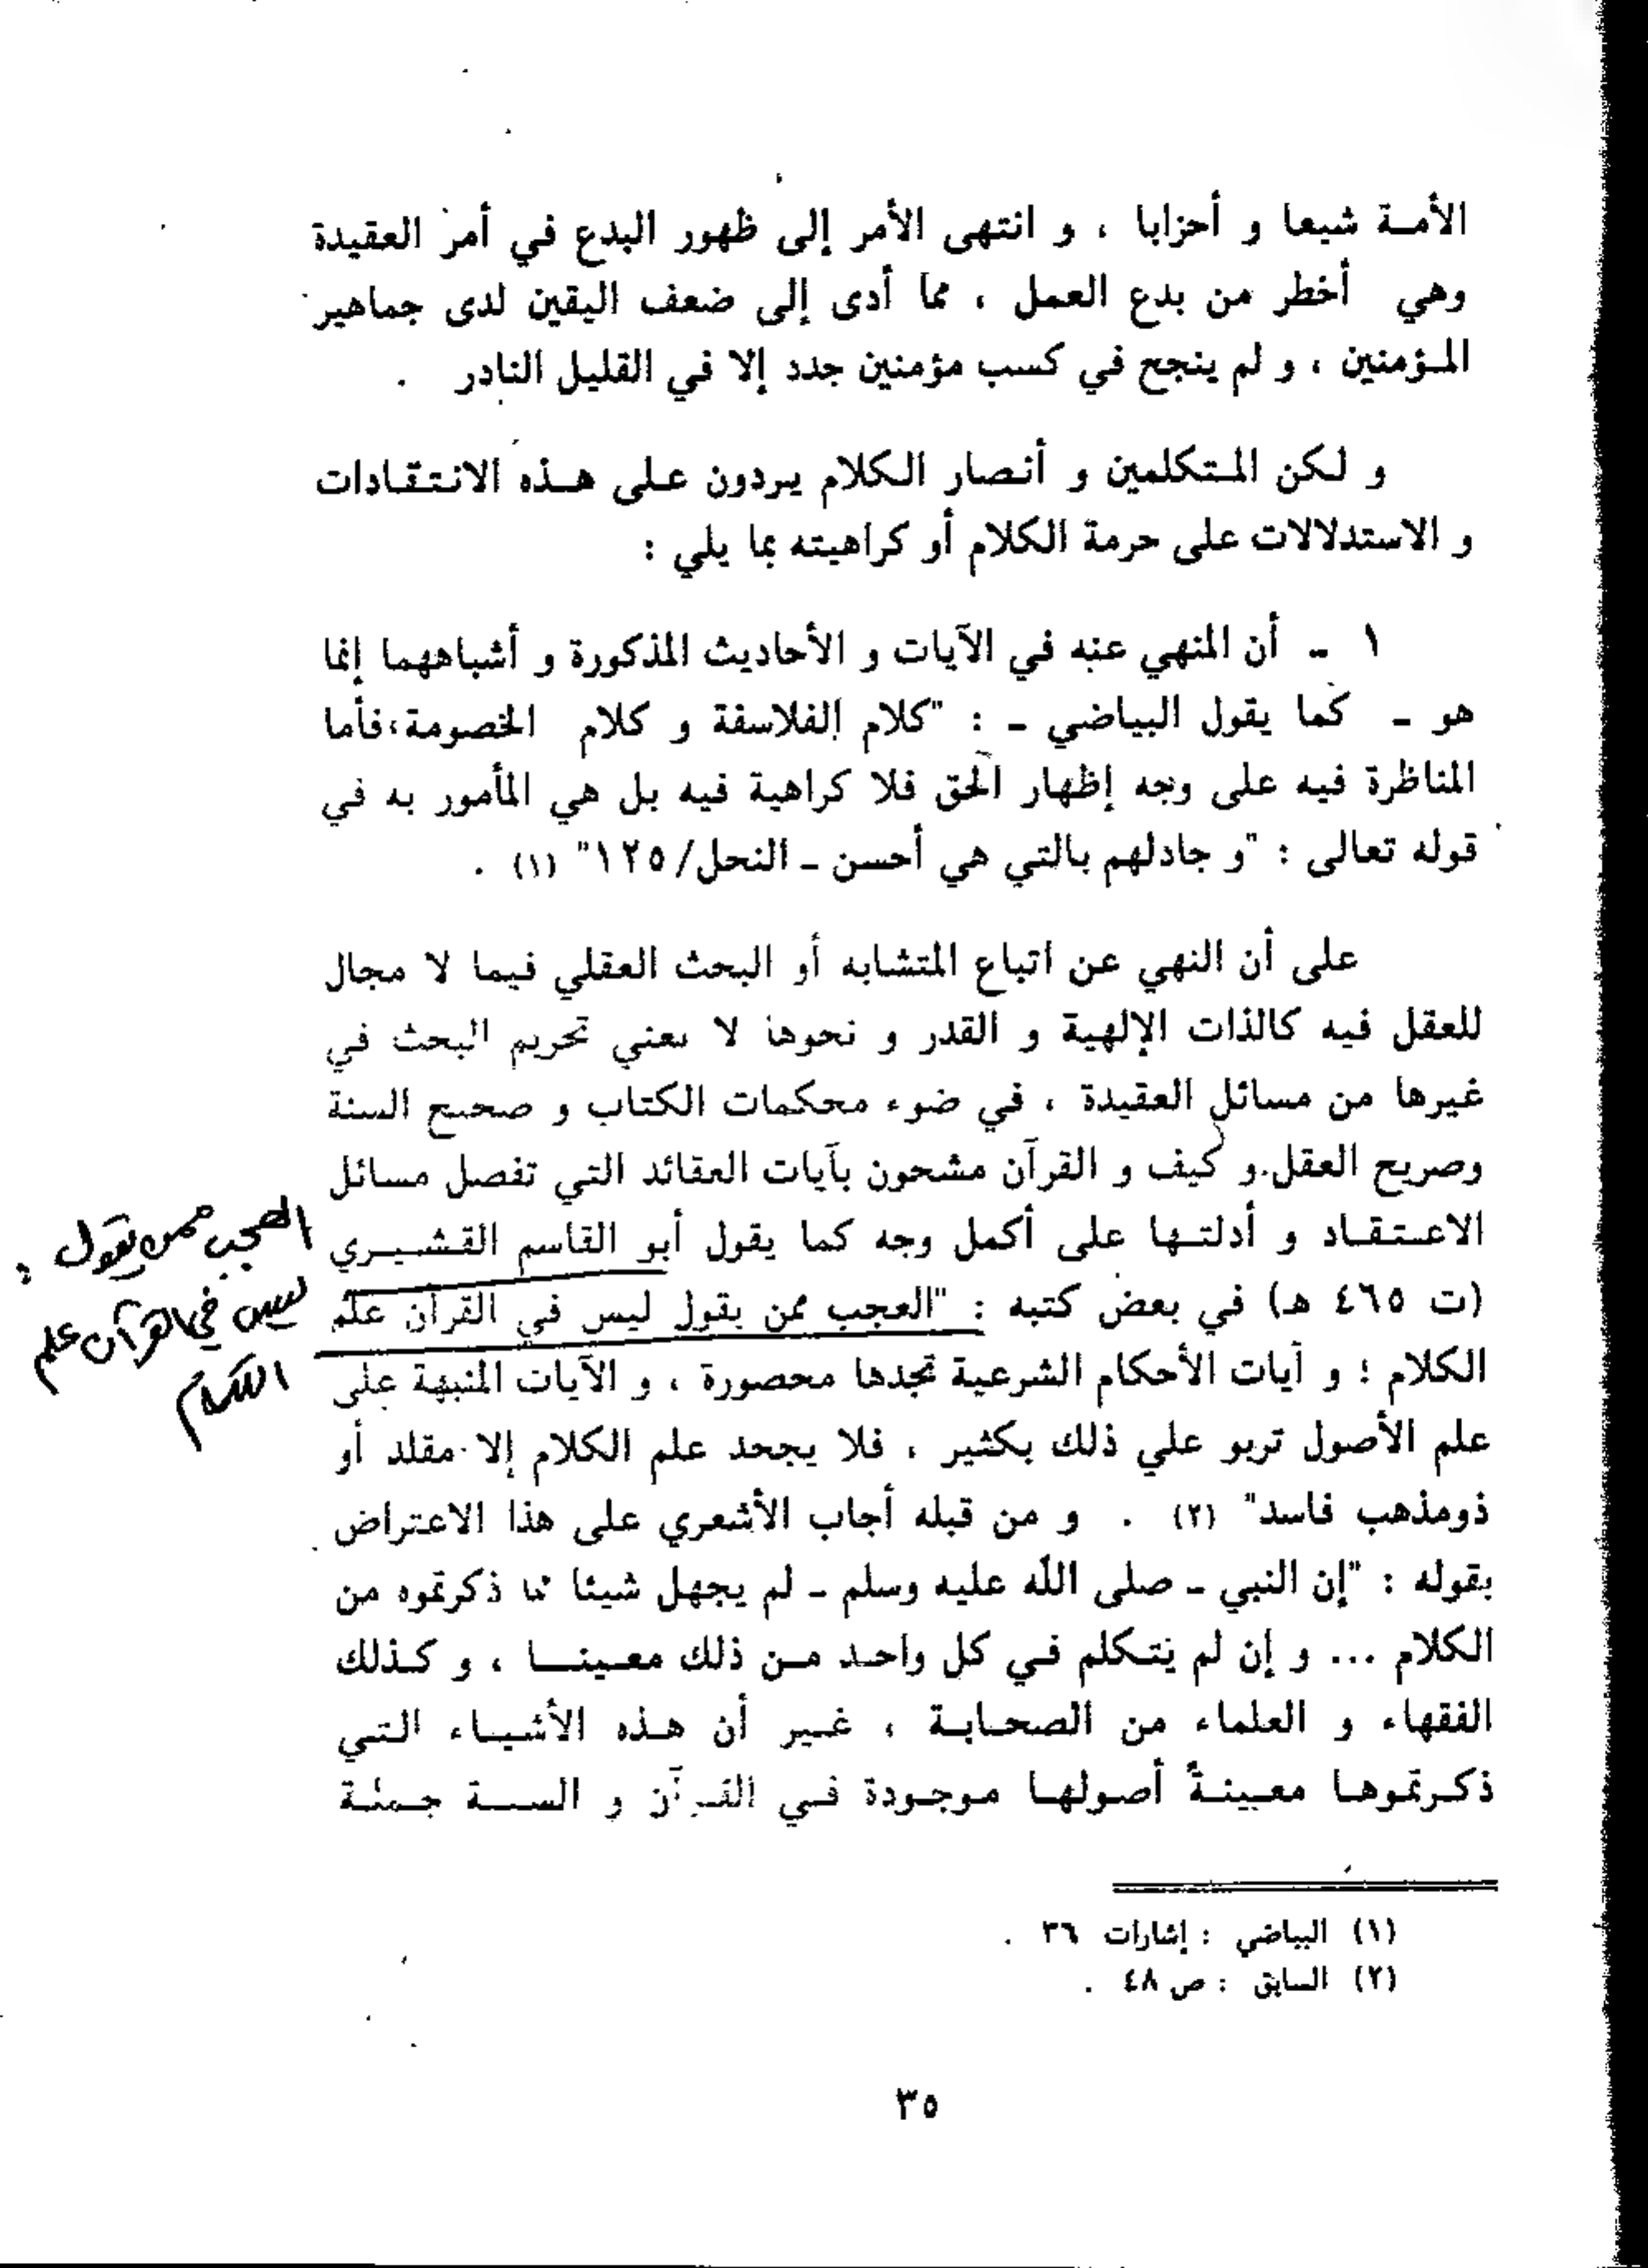 الأمة شيعا و أحزابا ، و انتهى الأمر إلى ظهور البدع في أمر العقيدة
وهي أخطر من بدع العمل ، مما أدى إلى ضعف اليقين لدى جماهير
المؤمنين ، و لم ينجح في كسب مؤمنين جدد إلا في القليل النادر .
و لكن المتكلمين و أنصار الكلام يردون على هذه الانتقادات
و الاستدلالات على حرمة الكلام أو كراهيته بما يلي :
١ - أن المنهي عنه في الآيات و الأحاديث المذكورة و أشباههما إنما
هو - كما يقول البياضي - : "كلام الفلاسفة و كلام الخصومة،فأما
المناظرة فيه على وجه إظهار الحق فلا كراهية فيه بل هي المأمور به في
قوله تعالى : "و جادلهم بالتي هي أحسن - النحل/١٢٥" (١) .
على أن النهي عن اتباع المتشابه أو البحث العقلي فيما لا مجال
للعقل فيه كالذات الإلهية و القدر و نحوها لا يعني تحريم البحث في
غيرها من مسائل العقيدة ، في ضوء محكمات الكتاب و صحيح السنة
وصريح العقل.و كيف و القرآن مشحون بآيات العقائد التي تفصل مسائل
الاعتقاد و أدلتها على أكمل وجه كما يقول أبو القاسم القشيري
(ت ٤٦٥ هـ) في بعض كتبه : "العجب ممن يقول ليس في القرآن علم
الكلام ؛ و آيات الأحكام الشرعية تجدها محصورة ، و الآيات المنبهة على
علم الأصول تربو علي ذلك بكثير ، فلا يجحد علم الكلام إلا مقلد أو
ذومذهب فاسد" (٢) . و من قبله أجاب الأشعري على هذا الاعتراض
بقوله : "إن النبي - صلى الله عليه وسلم - لم يجهل شيئا مما ذكرتموه من
الكلام ... و إن لم يتكلم في كل واحد من ذلك معينا ، و كذلك
الفقهاء و العلماء من الصحابة ، غير أن هذه الأشياء التي
ذكرتموها معينةً أصولها موجودة في القرآن و السنة جملة
العجب ممن يقول :
ليس في القرآن علم
الكلام
(١) البياضي : إشارات ٣٦ .
(٢) السابق : ص ٤٨ .
٣٥